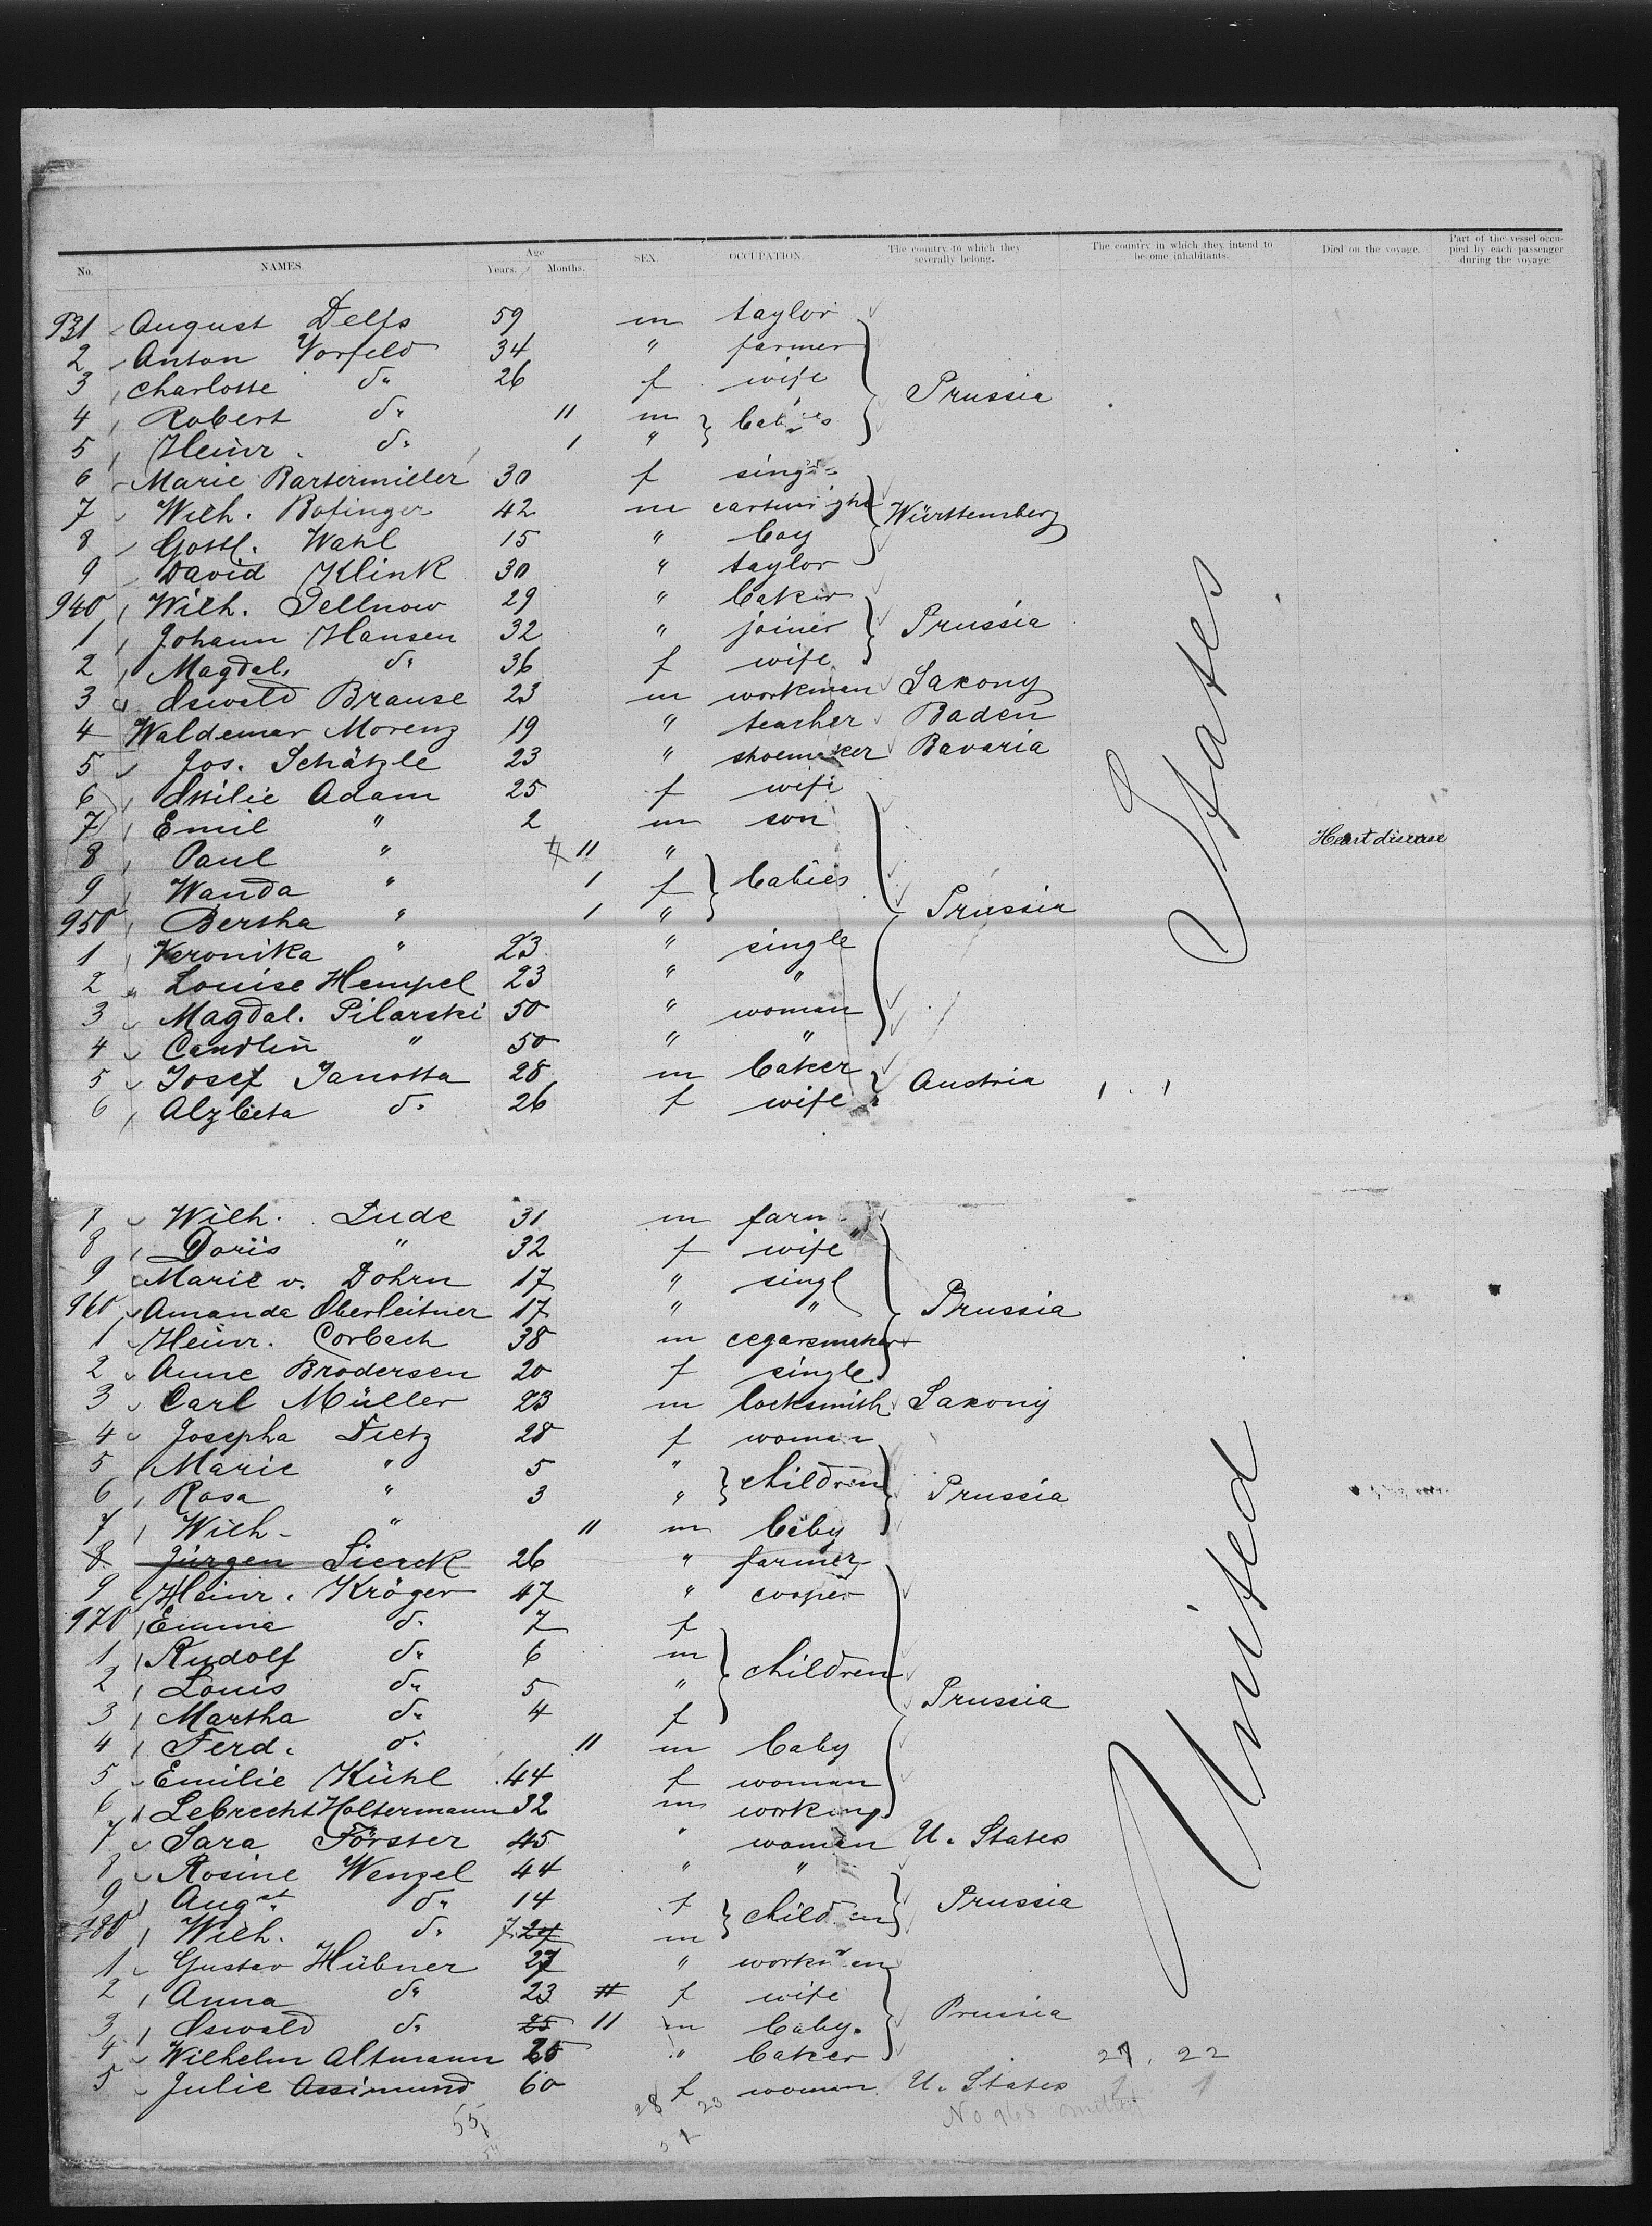 No. NAMES. Age Years. Months. SEX. OCCUPATION. The country to which they severally belong. The country in which they intend to become inhabitants. Died on the voyage. Part of the vessel occupied by each passenger during the voyage.
931 August Delfs 59 m taylor
2 Anton Vorfeld 34 " farmer
3 Charlotte do 26 f wife Prussia
4 Robert do 11 m babies
5 Heinr. do 1 "
6 Marie Bartermiller 30 f single
7 Wilh. Bofinger 42 m cartwright Württemberg
8 Gottl. Wahl 15 " boy
9 David Klink 30 " taylor
940 Wilh. Pellnow 29 " baker
1 Johann Hansen 32 " joiner Prussia
2 Magdal. do 36 f wife
3 Oswald Brause 23 m workman Saxony
4 Waldemar Morenz 19 " teacher Baden
5 Jos. Schätzle 23 " shoemaker Bavaria
6 Ottilie Adam 25 f wife
7 Emil " 2 m son Heart disease
8 Paul " 11 "
9 Wanda " 1 f babies Prussia
950 Bertha " 1 "
1 Veronika " 23 " single
2 Louise Hempel 23 " "
3 Magdal. Pilarski 50 " woman
4 " 50 " "
5 Josef Janotta 28 m baker Austria
6 Alzbeta do 26 f wife
7 Wilh. Lude 31 m farm
8 Doris " 32 f wife
9 Marie v. Dohrn 17 " singl
960 Amanda Oberleitner 17 " " Prussia
1 Heinr. Corbach 38 m cegarsmaker
2 Anne Brodersen 20 f single
3 Carl Müller 23 m locksmith Saxony
4 Josepha Dietz 28 f woman
5 Marie " 5 " children
6 Rosa " 3 " Prussia
7 Wilh. " 11 m baby
8 Jürgen Sierck 26 " farmer
9 Heinr. Kröger 47 " cooper
970 Emma do 7 f
1 Rudolf do 6 m children
2 Louis do 5 "
3 Martha do 4 f Prussia
4 Ferd. do 11 m baby
5 Emilie Kühl 44 f woman
6 Lebrecht Holtermann 32 m workmg
7 Sara Förster 45 " woman U. States
8 Rosine Wenzel 44 " "
9 Augst. do 14 f children Prussia
980 Wilh. do 7 m
1 Gustav Hübner 27 " workman
2 Anna do 23 f wife
3 Oswald do 25 11 m baby. Prussia
4 Wilhelm Altmann 25 " baker 21. 22
5 Julie Assimund 60 f woman U. States 1 1
United States
55 28 23 No 968 omitted